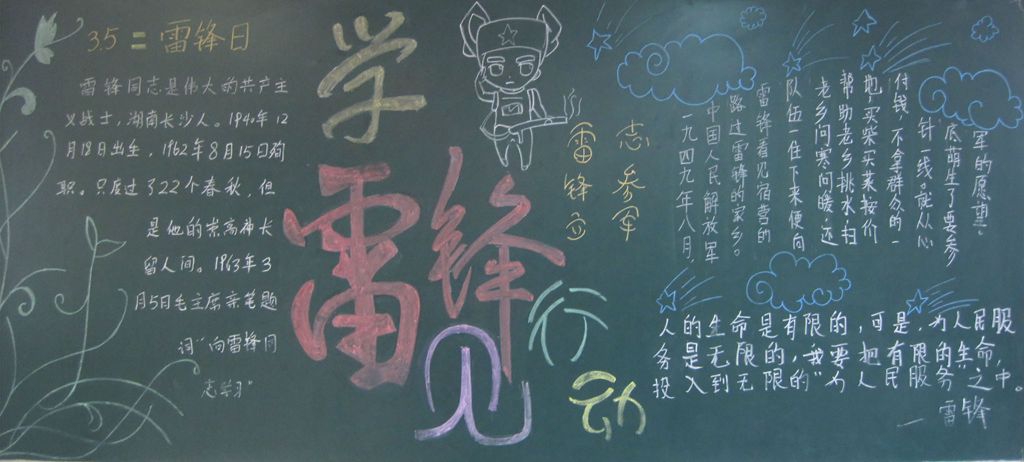 3.5 = 雷锋日
雷锋同志是伟大的共产主
义战士,湖南长沙人。1940年12
月18日出生,1962年8月15日殉
职。只度过了22个春秋,但
是他的崇高神长
留人间。1963年3
月5日毛主席亲笔题
词"向雷锋同
志学习"
学
雷锋
见
行
动
雷锋立
志参军
一九四九年八月,
中国人民解放军
路过雷锋的家乡。
雷锋看见宿营的
队伍一住下来便向
老乡问寒问暖,还
帮助老乡挑水扫
地,买柴买菜按价
付钱,不拿群众的一
针一线,就从心
底萌生了要参
军的愿望。
人的生命是有限的,可是,为人民服
务是无限的,我要把有限的生命,
投入到无限的"为人民服务之中。
—雷锋